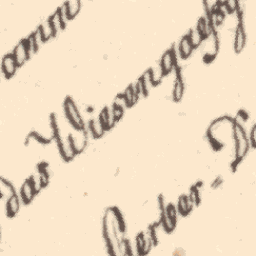 amm
das Wiesengaessg
Gerber-Da